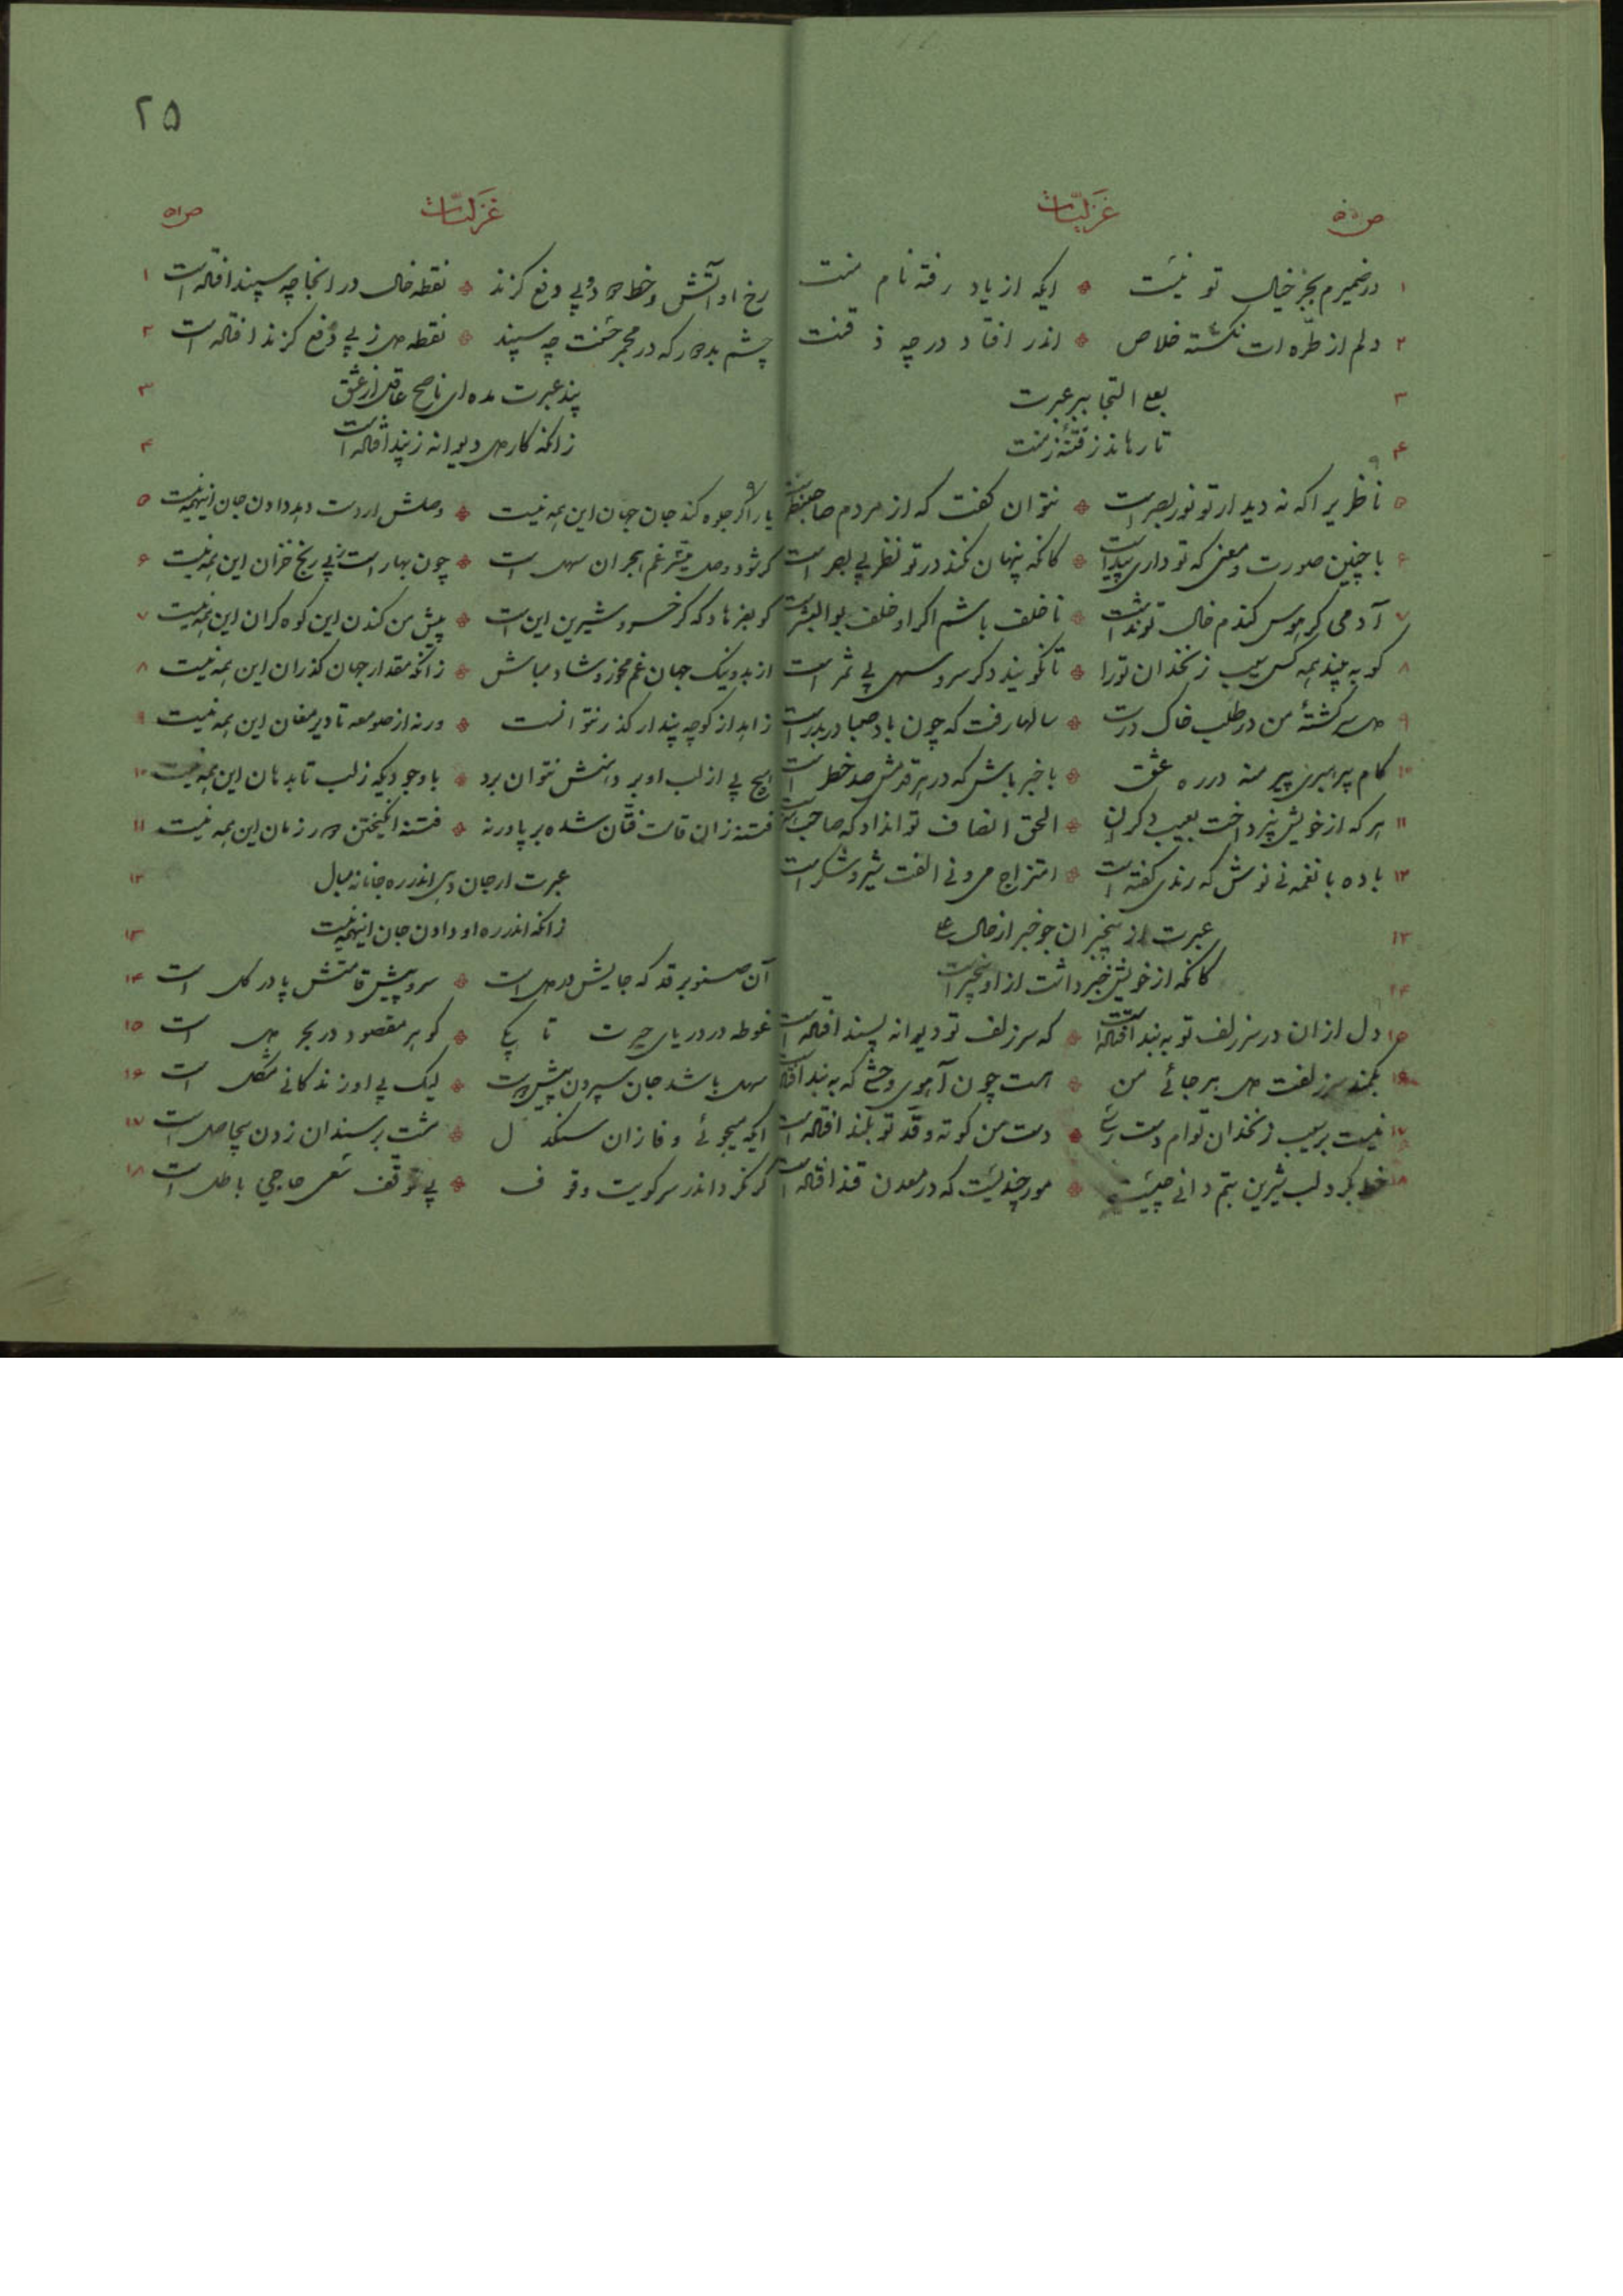 ۲۵
غزلیّات
ص۵۰
۱ در ضمیرم بجز خیال تو نیست * ایکه از یاد رفته نام منت
۲ دلم از طرّه ات نگشته خلاص * اندر افتاد در چه ذقنت
۳ التجا ببر عبرت
۴ تا رهاند ز فتنهٔ زمنت
۵ ناظر یرا که نه دیدار تو نور بصر است * نتوان گفت که از مردم صاحبنظر است
۶ با چنین صورت و معنی که تو داری پیداست * کانکه پنهان نکند در تو نظر بی بصر است
۷ آدمی گر هوس گندم خال تو نداشت * ناخلف باشم اگر او خلف بوالبشر است
۸ گو به بیند همه کس سیب زنخدان تو را * تا نگویند دگر سرو سهی بی ثمر است
۹ دل سرگشتهٔ من در طلب خاک درت * سالها رفت که چون باد صبا دربدر است
۱۰ کام پیر منه در ره عشق * با خبر باش که در هر قدمش صد خطر است
۱۱ هر که از خویش نپرداخت بعیب دگران * الحق انصاف تواند داد که صاحب هنر است
۱۲ باده با نغمه نی نوش که رندی گفته است * امتزاج می و نی الفت شیر و شکر است
۱۳ عبرت از بیخبران جو خبر از حال
۱۴ کانکه از خویش خبر داشت از او بیخبر است
۱۵ دل از ان در سر زلف تو به بند افتاده است * که سر زلف تو دیوانه پسند افتاده است
۱۶ بکمند سر زلفت دل هر جائی من * هست چون آهوی وحشی که به بند افتاده است
۱۷ نیست بر سیب زنخدان توام دست رسی * دست من کوته و قدّ تو بلند افتاده است
۱۸ خط بگرد لب شیرین بتم دانی چیست * مور چندیست که در معدن قند افتاده است
غزلیّات
ص۵۱
۱ رخ او آتش و خط دود و پی دفع گزند * نقطه خال در انجا چه سپند افتاده است
۲ چشم بد دور که در مجمر حسنت چه سپند * نقطه دل ز پی دفع گزند افتاده است
۳ پند عبرت مده ای ناصح عاقل از عشق
۴ زانکه کار دل دیوانه ز پند افتاده است
۵ یار اگر جلوه کند جان جهان این همه نیست * وصلش ار دست دهد دادن جان اینهمه نیست
۶ گر شود وصل میسّر غم هجران سهل است * چون بهار است ز پی رنج خزان این همه نیست
۷ گو بفرهاد که گر خسرو شیرین این است * پیش من کندن این کوه گران این همه نیست
۸ از بد و نیک جهان غم مخور و شاد مباش * زانکه مقدار جهان گذران این همه نیست
۹ زاهد از کوچه پندار گذر نتوانست * ورنه از صومعه تا دیر مغان این همه نیست
۱۰ هیچ پی از لب او بر دهنش نتوان برد * با وجودیکه ز لب تا بدهان این همه نیست
۱۱ فتنه زان قامت فتّان شده بر پا ورنه * فتنه انگیختن دور زمان این همه نیست
۱۲ عبرت ار جان دهی اندر ره جانانه مبال
۱۳ زانکه اندر ره او دادن جان اینهمه نیست
۱۴ آن صنوبر قد که جایش در دل است * سرو پیش قامتش پا در گل است
۱۵ غوطه در دریای حیرت تا بکی * گوهر مقصود در بحر دل است
۱۶ سهل باشد جان سپردن پیش دوست * لیک بی او زندگانی مشکل است
۱۷ ایکه میجوئی وفا زان سنگدل * مشت بر سندان زدن بیحاصل است
۱۸ گر نکرد اندر سر کویت وقوف * بی توقف سعی حاجی باطل است